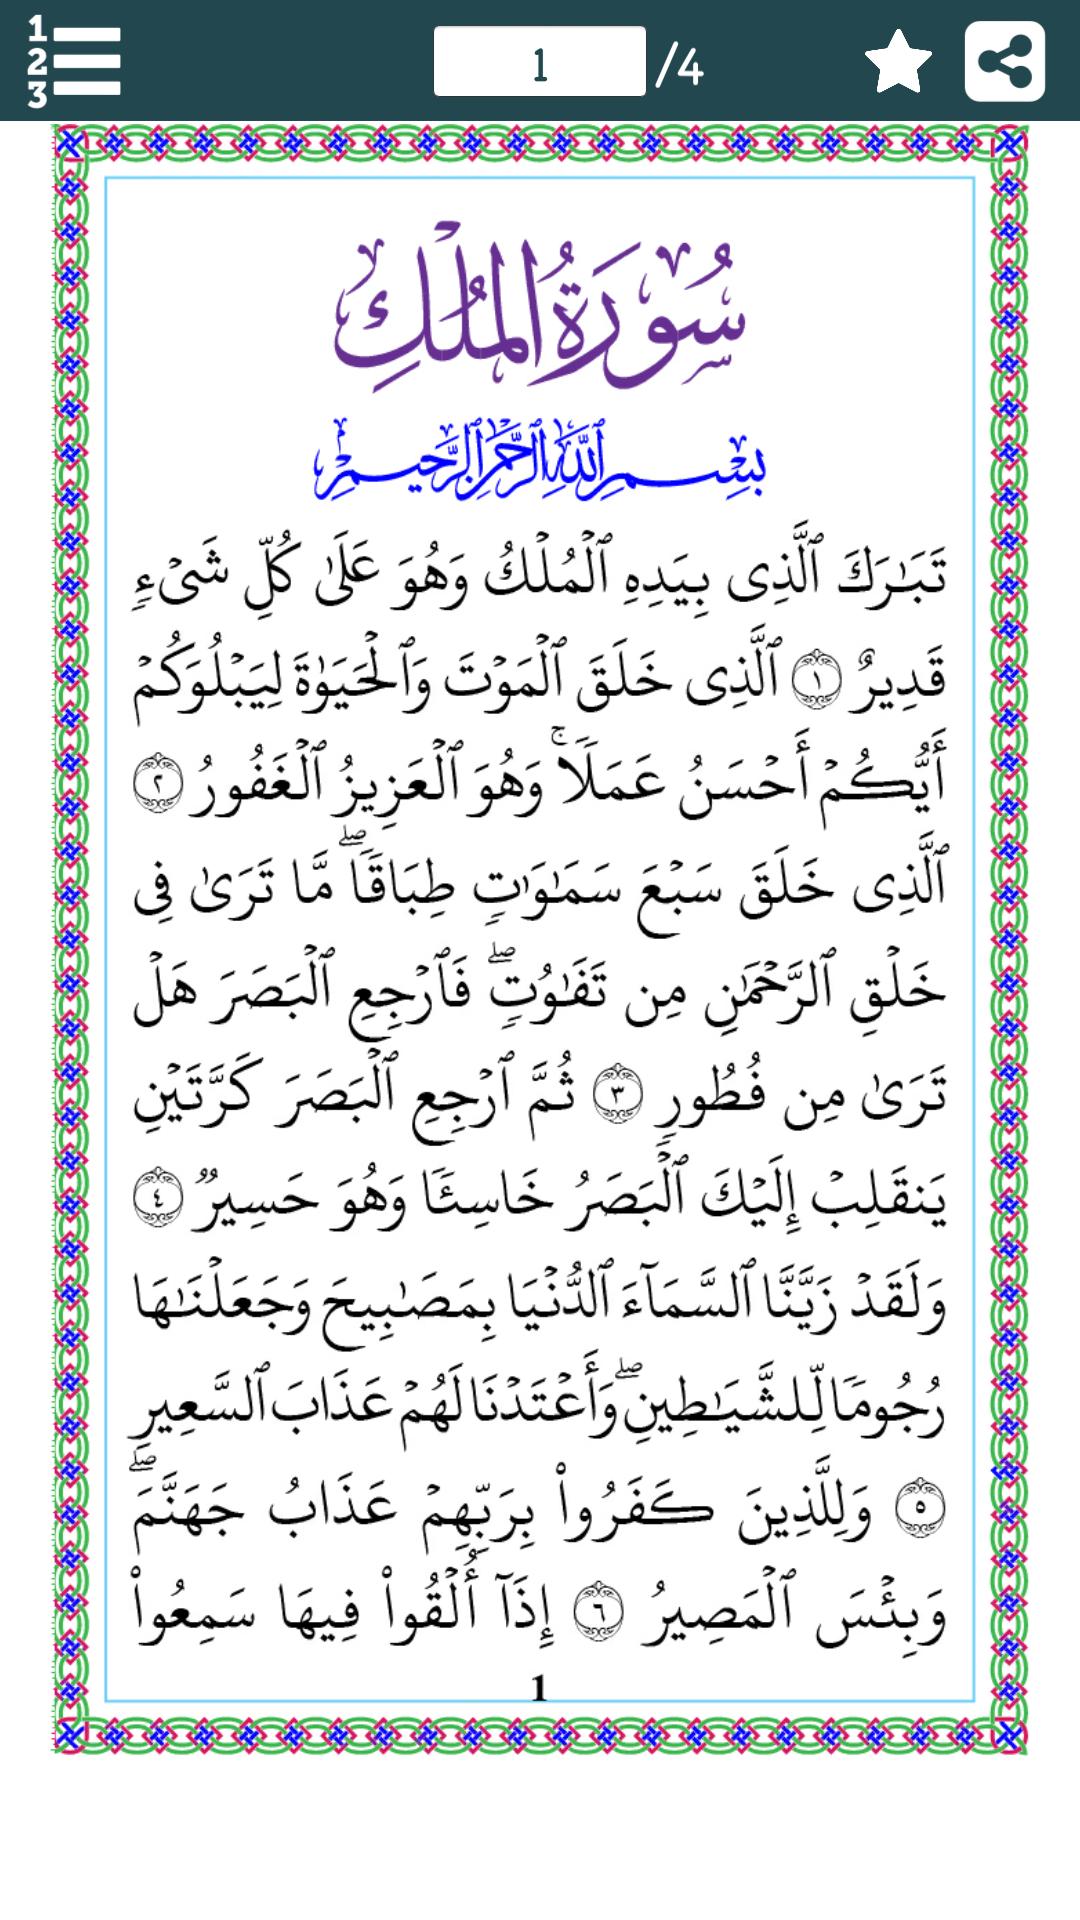 1
2
3
1 /4
سُورَةُ المُلْكِ
بِسْمِ ٱللَّهِ ٱلرَّحْمَٰنِ ٱلرَّحِيمِ
تَبَٰرَكَ ٱلَّذِى بِيَدِهِ ٱلْمُلْكُ وَهُوَ عَلَىٰ كُلِّ شَىْءٍ
قَدِيرٌ ١ ٱلَّذِى خَلَقَ ٱلْمَوْتَ وَٱلْحَيَوٰةَ لِيَبْلُوَكُمْ
أَيُّكُمْ أَحْسَنُ عَمَلًا ۚ وَهُوَ ٱلْعَزِيزُ ٱلْغَفُورُ ٢
ٱلَّذِى خَلَقَ سَبْعَ سَمَٰوَٰتٍ طِبَاقًا ۖ مَّا تَرَىٰ فِى
خَلْقِ ٱلرَّحْمَٰنِ مِن تَفَٰوُتٍ ۖ فَٱرْجِعِ ٱلْبَصَرَ هَلْ
تَرَىٰ مِن فُطُورٍ ٣ ثُمَّ ٱرْجِعِ ٱلْبَصَرَ كَرَّتَيْنِ
يَنقَلِبْ إِلَيْكَ ٱلْبَصَرُ خَاسِئًا وَهُوَ حَسِيرٌ ٤
وَلَقَدْ زَيَّنَّا ٱلسَّمَآءَ ٱلدُّنْيَا بِمَصَٰبِيحَ وَجَعَلْنَٰهَا
رُجُومًا لِّلشَّيَٰطِينِ ۖ وَأَعْتَدْنَا لَهُمْ عَذَابَ ٱلسَّعِيرِ
٥ وَلِلَّذِينَ كَفَرُوا۟ بِرَبِّهِمْ عَذَابُ جَهَنَّمَ ۖ
وَبِئْسَ ٱلْمَصِيرُ ٦ إِذَآ أُلْقُوا۟ فِيهَا سَمِعُوا۟
1